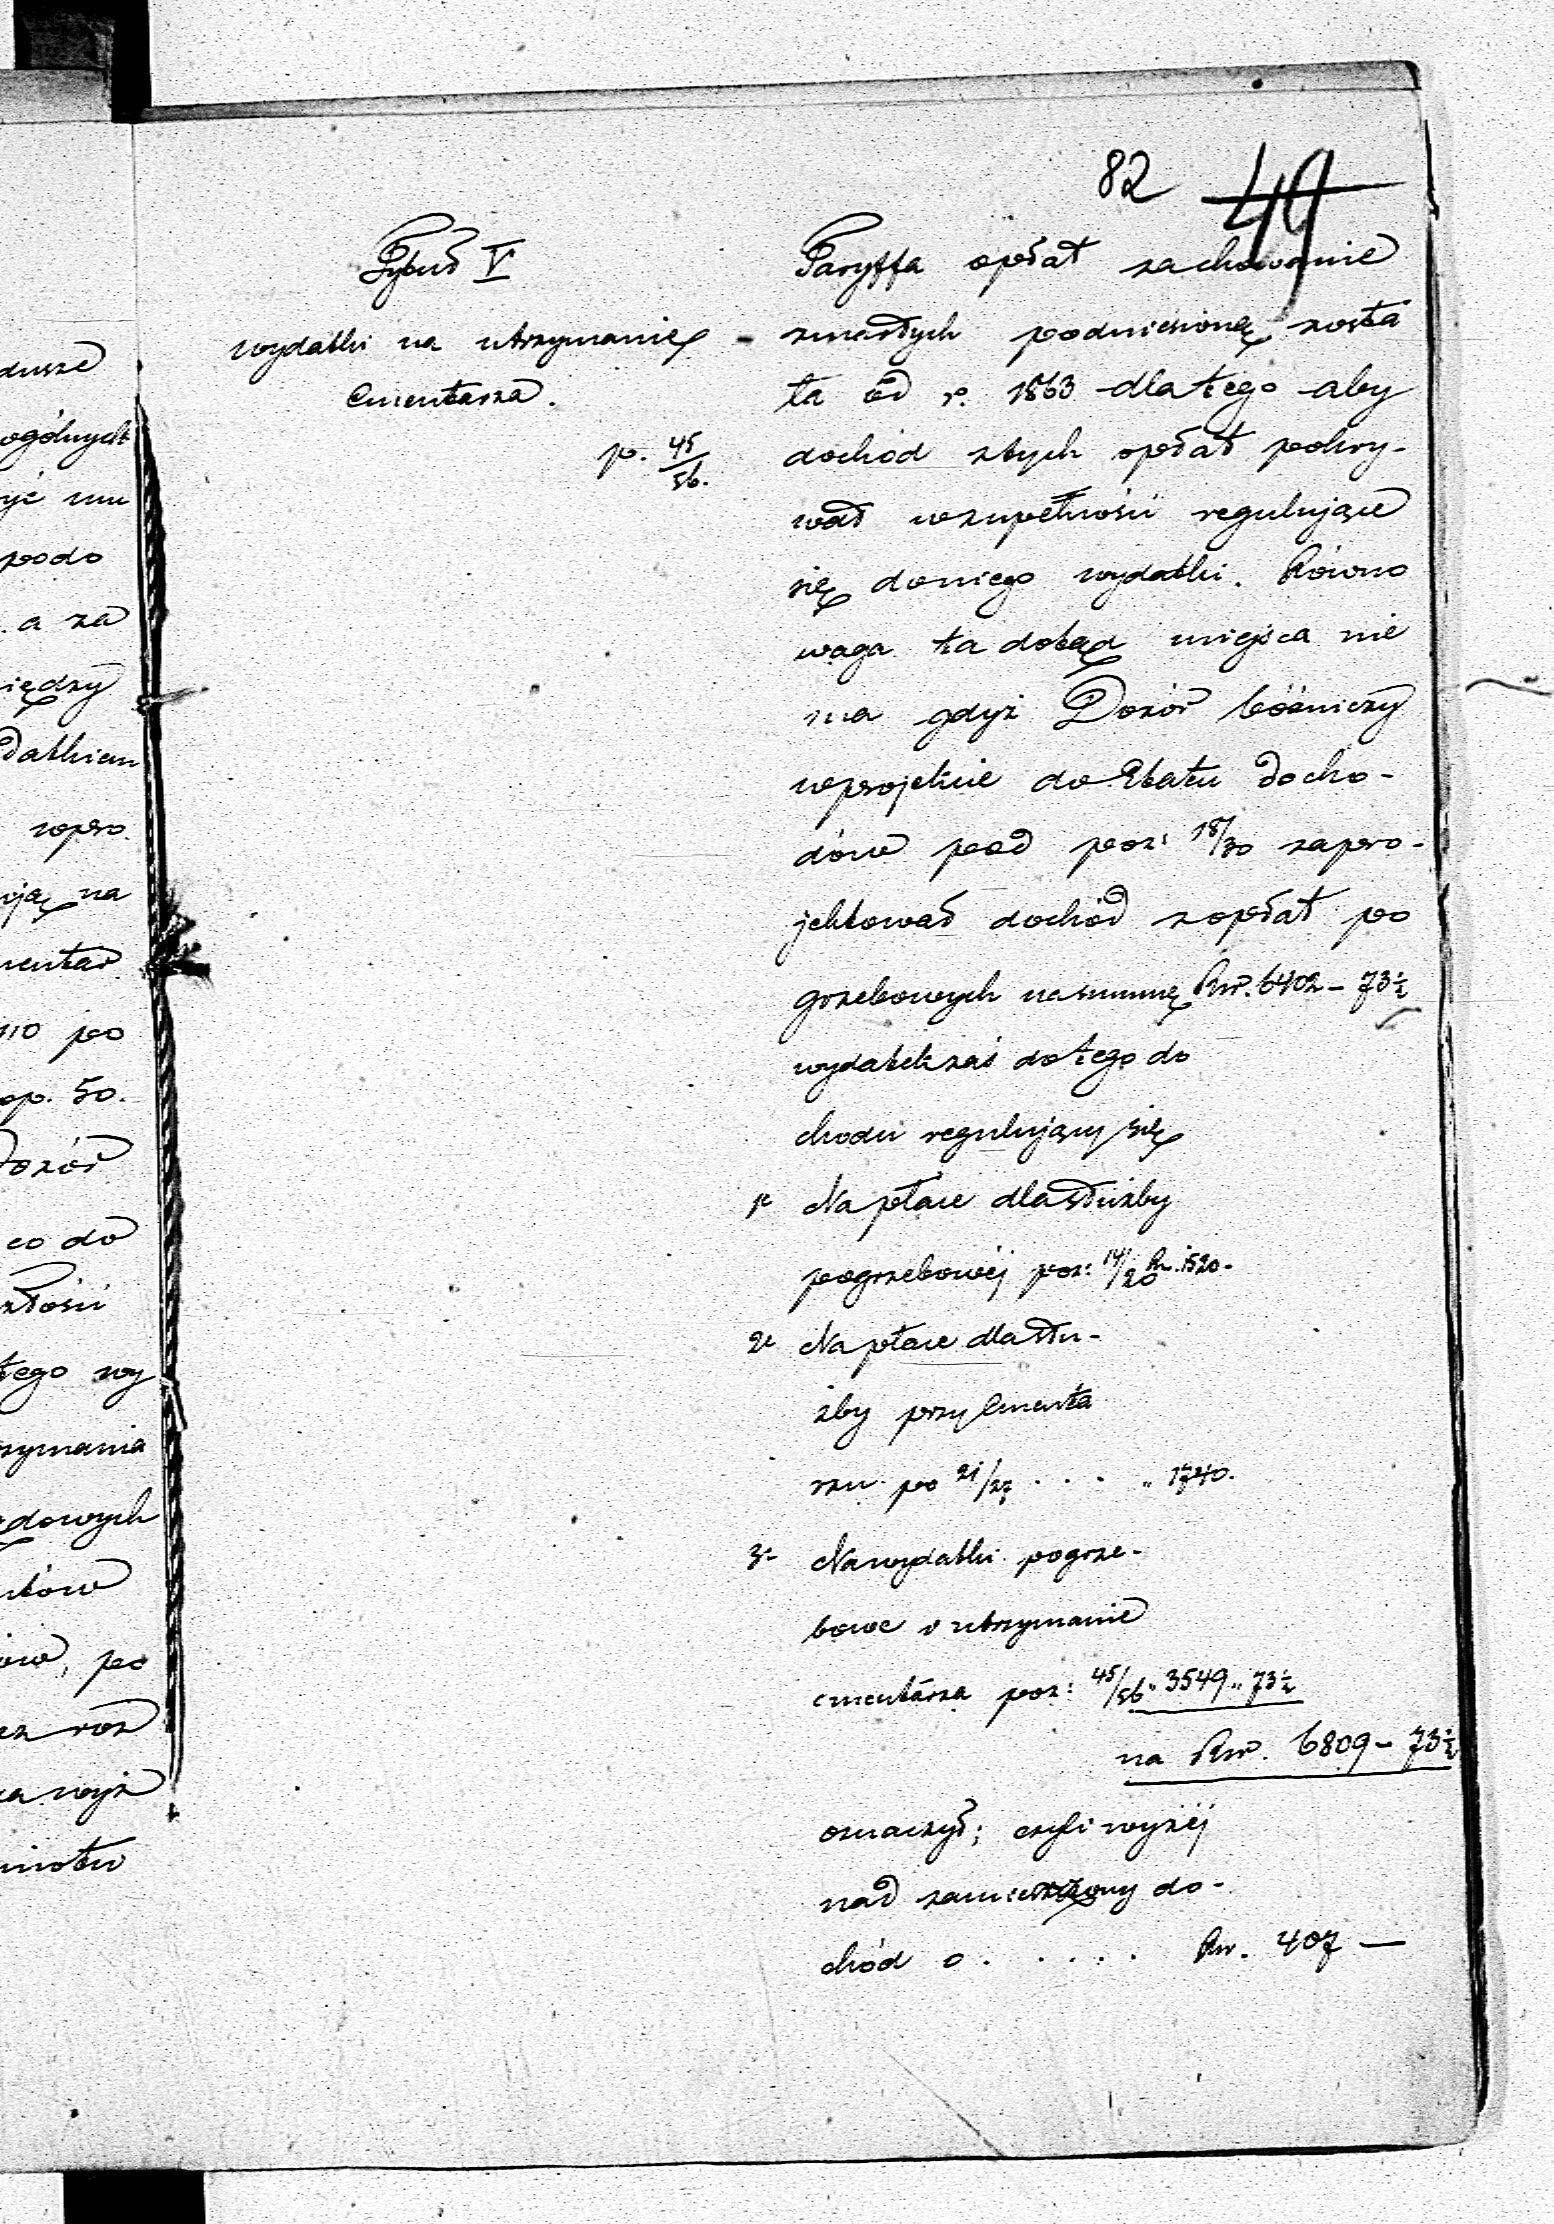 82 49
Tytuł V
wydatki na utrzymanie
Cmentarza.
p. 45/56.
Taryffa opłat zachowanie
zmarłych podniesioną zosta
ła od r. 1863 dlatego aby
dochód ztych opłat pokry-
wał wzupełności regulujące
się doniego wydatki. Równo
waga ta dotąd miejsca nie
ma gdyż Dozór bóźniczy
wprojekcie do Etatu docho-
dów pod poz: 18/30 zapro-
jektował dochód zopłat po
grzebowych nasummę Rsr. 6402 - 73½
wydatek zaś do tego do
chodu regulujący się
1e Na płace dla służby
pogrzebowéj poz: 14/20 Rs. 1520.
2e Na płace dla słu-
żby przy Cmenta
rzu po 21/27 . . . „ 1740.
3e Na wydatki pogrze-
bowe i utrzymanie
cmentarza poz: 45/56 „ 3549 „ 73½
na Rsr. 6809 - 73½
oznaczył; czyli wyżéj
nad zamierzony do-
chód o . . . . . Rsr. 407 —
dusze
ogólnych
yć mu
podo
a za
iędzy
datkiem
wpro
ją na
mentar
no po
op. 50.
Dozór
co do
złości
tego wy
rzymania
ędowych
ntów
ów, po
ez roz
za wyż
miotu